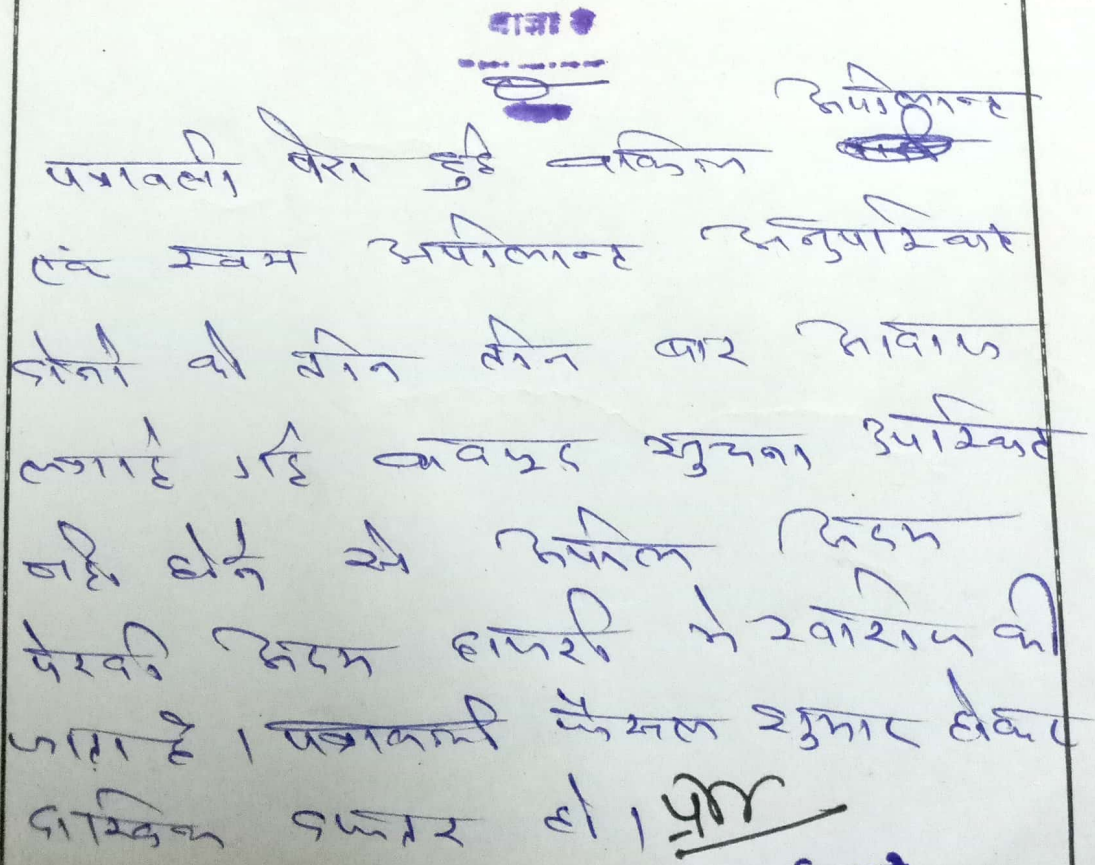 आज्ञा
अपीलान्ट
पत्रावली पेश हुई वकिल
एवं स्वयं अपीलान्ट अनुपस्थित
दोनो को तीन तीन बार आवाज
लगाई गई बावजूद सुचना उपस्थित
नही होने से अपील अदम
पेरवी अदम हाजरी मे खारीज की
जाती है । पत्रावली फैसल शुमार होकर
दाखिल दफ्तर हो ।